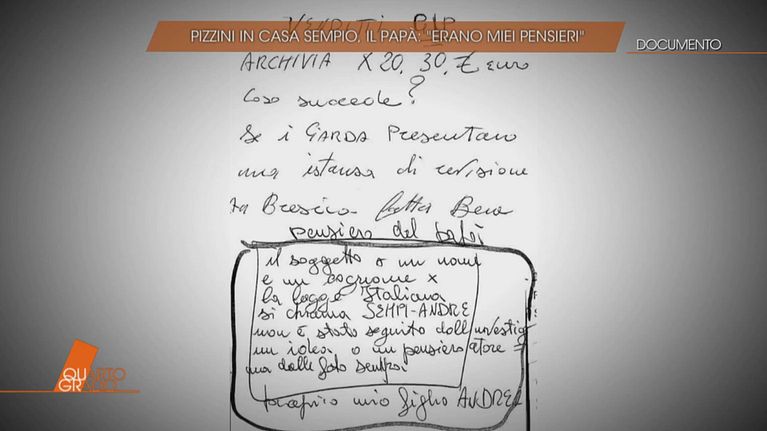 PIZZINI IN CASA SEMPIO, IL PAPÀ: "ERANO MIEI PENSIERI"
DOCUMENTO
ARCHIVIA X 20. 30. € euro
Cosa succede?
Se i GARDA Presentano
una istansa di revisione
a Brescia fatta Bene
pensiero del
il soggetto a un nome
e un cognome x
la legge Italiana
si chiama SEMPI-ANDRE
non è stato seguito dall'investig
un idea o un pensiero atore =
ma dalle foto
mio figlio ANDREA
QUARTO
GRADO